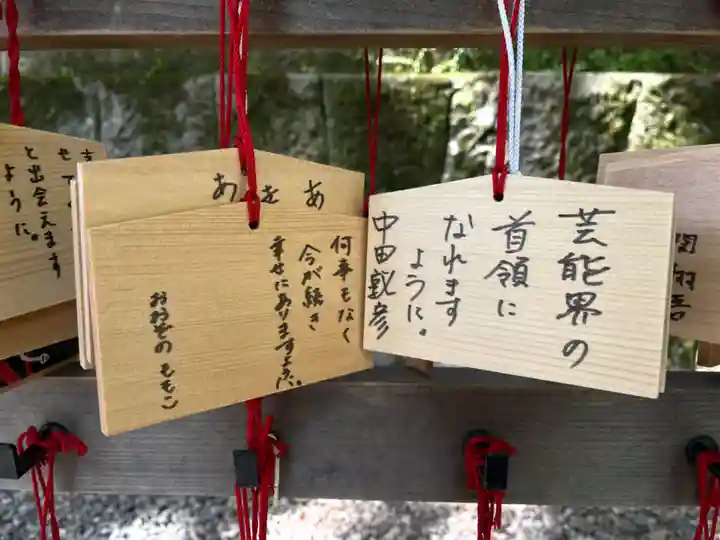 芸能界の
首領に
なれます
ように。
中田敦彦
何事もなく
今が続き
幸せにありますように。
おおぞの ももこ
と出会えます
ように。